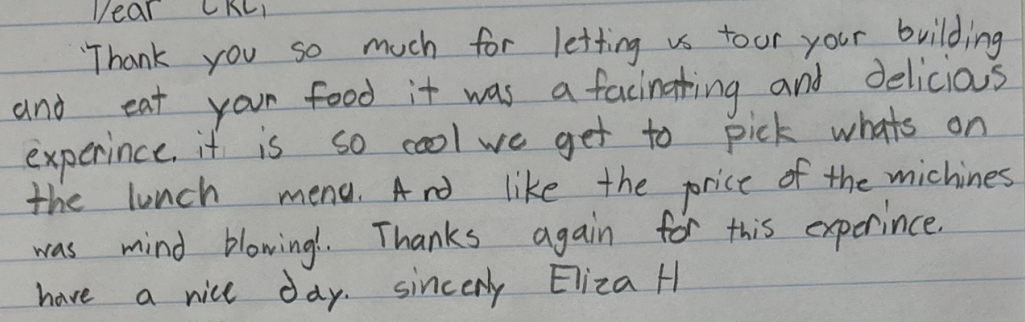 Dear CKC,
Thank you so much for letting us tour your building
and eat your food it was a facinating and delicious
experince. it is so cool we get to pick whats on
the lunch menu. And like the price of the michines
was mind blowing!. Thanks again for this experince.
have a nice day. sincerly Eliza H